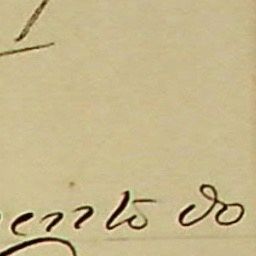 ento do